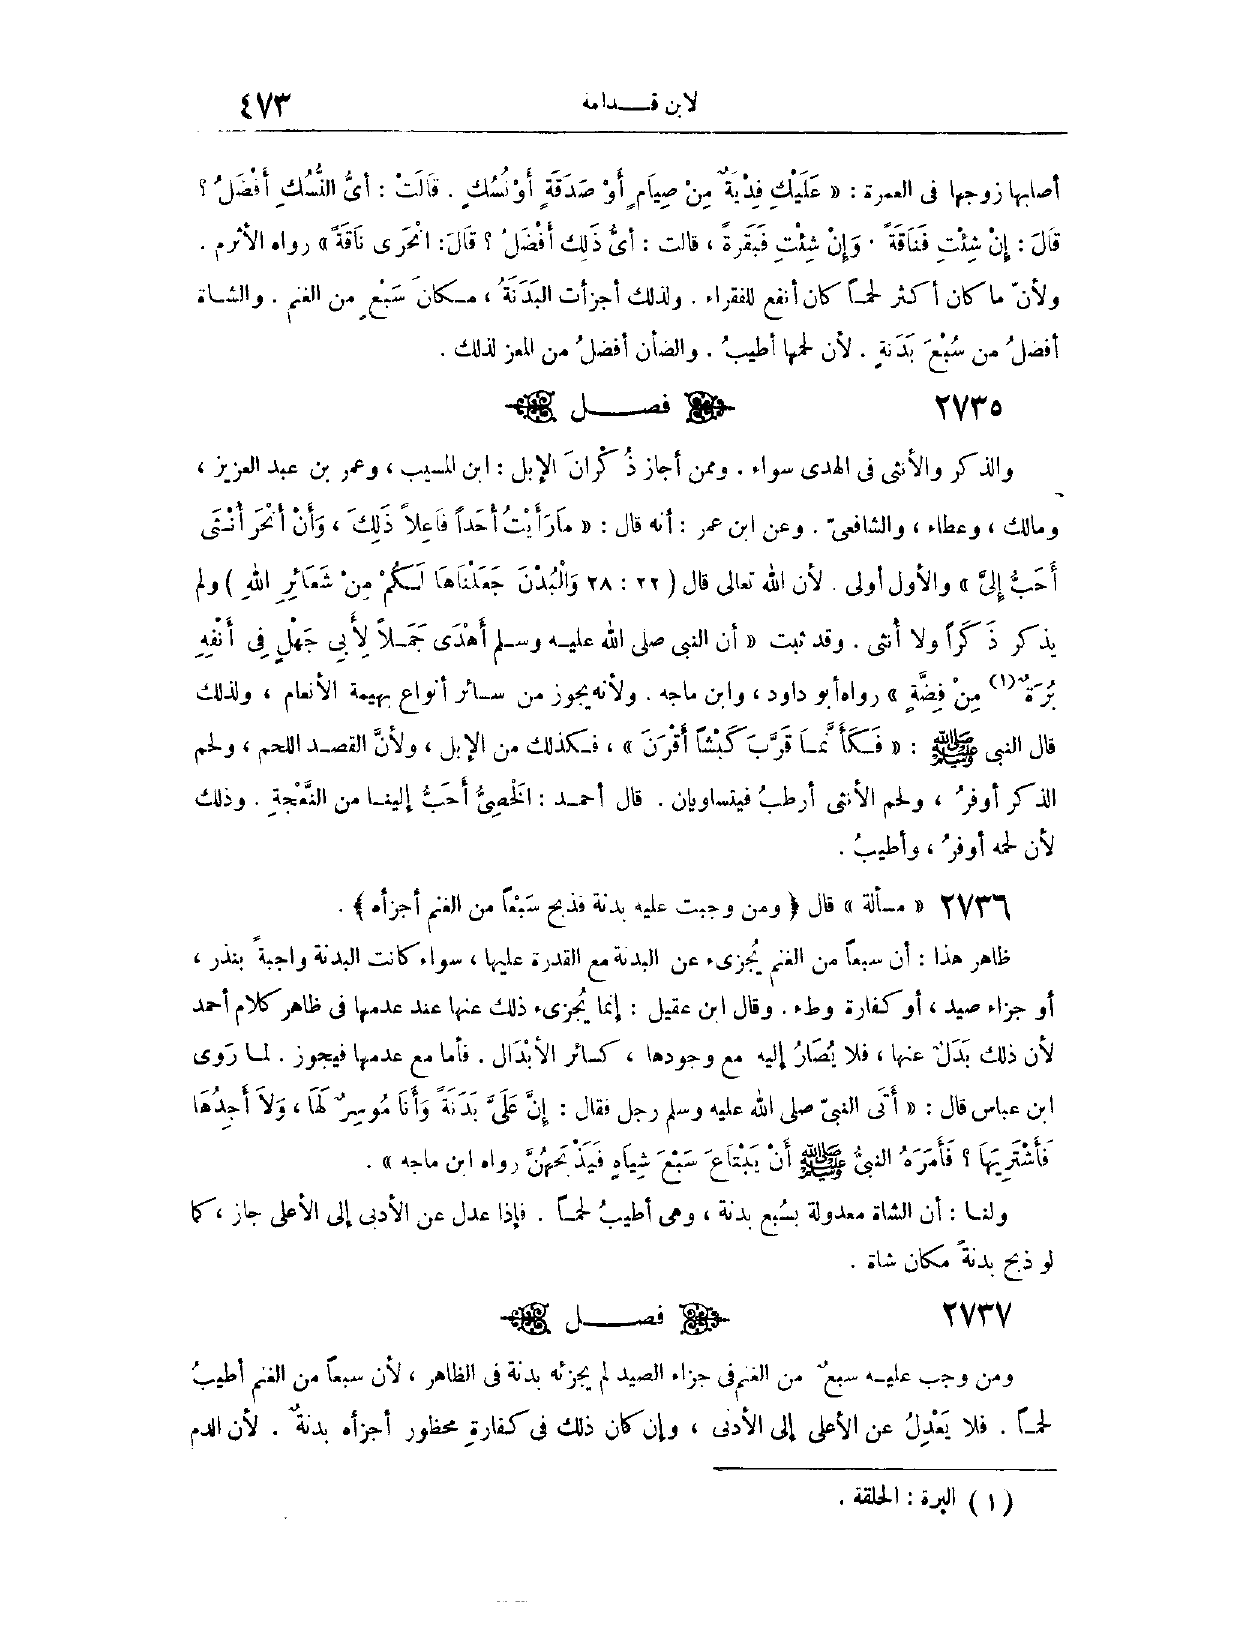 لابن قـــدامة ٤٧٣
أصابها زوجها فى العمرة : « عَلَيْكِ فِدْيَةٌ مِنْ صِيَامٍ أَوْ صَدَقَةٍ أَوْ نُسُكٍ . قَالَتْ : أَىُّ النُّسُكِ أَفْضَلُ ؟
قَالَ : إِنْ شِئْتِ فَنَاقَةً . وَإِنْ شِئْتِ فَبَقَرةً ، قالت : أَىُّ ذَلِكَ أَفْضَلُ ؟ قَالَ : انْحَرِى نَاقَةً » رواه الأثرم .
ولأنّ ما كان أكثر لحمـاً كان أنفع للفقراء . ولذلك أجزأت البَدَنَةُ ، مـكانَ سَبْعٍ من الغنم . والشـاة
أفضلُ من سُبْعَ بَدَنةٍ . لأن لحمها أطيبُ . والضأن أفضلُ من المعز لذلك .
٢٧٣٥ فصــــل
والذكر والأنثى فى الهدى سواء . وممن أجاز ذُكْرانَ الإبل : ابن المسيب ، وعمر بن عبد العزيز ،
ومالك ، وعطاء ، والشافعىّ . وعن ابن عمر : أنه قال : « مَا رَأَيْتُ أَحَداً فَاعِلاً ذَلِكَ ، وَأَنْ أَنْحَرَ أُنْـثَى
أَحَبُّ إِلىَّ » والأول أولى . لأن الله تعالى قال ( ٢٢ : ٢٨ وَالْبُدْنَ جَعَلْنَاهَا لَـكُمْ مِنْ شَعَائِرِ اللهِ ) ولم
يذكر ذَكَراً ولا أنثى . وقد ثبت « أن النبى صلى الله عليـه وسـلم أَهْدَى جَمَـلاً لِأَبِى جَهْلٍ فِى أَنْفِهِ
بُرَةٌ (١) مِنْ فِضَّةٍ » رواه أبو داود ، وابن ماجه . ولأنه يجوز من سـائر أنواع بهيمة الأنعام ، ولذلك
قال النبى ﷺ : « فَـكَأَنَّمَـا قَرَّبَ كَبْشاً أَقْرَنَ » ، فـكذلك من الإبل ، ولأنَّ القصـد اللحم ، ولحم
الذكر أوفرُ ، ولحم الأنثى أرطبُ فيتساويان . قال أحمـد : الخَصِىُّ أَحَبُّ إلينـا من النَّعْجةِ . وذلك
لأن لحمه أوفرُ ، وأطيبُ .
٢٧٣٦ « مسألة » قال ﴿ ومن وجبت عليه بدنة فذبح سَبْعاً من الغنم أجزأه ﴾ .
ظاهر هذا : أن سبعاً من الغنم يُجزىء عن البدنة مع القدرة عليها ، سواء كانت البدنة واجبةً بنذر ،
أو جزاء صيد ، أو كفارة وطء . وقال ابن عقيل : إنما يُجزىء ذلك عنها عند عدمها فى ظاهر كلام أحمد
لأن ذلك بَدَلٌ عنها ، فلا يُصَارُ إليه مع وجودها ، كسائر الأبْدَال . فأما مع عدمها فيجوز . لمـا رَوى
ابن عباس قال : « أَتَى النبىّ صلى الله عليه وسلم رجل فقال : إِنَّ عَلَىَّ بَدَنَةً وَأَنَا مُوسِرٌ لَهَا ، وَلاَ أَجِدُهَا
فَأَشْتَرِيَهَا ؟ فَأَمَرَهُ النبىُّ ﷺ أَنْ يَبْتَاعَ سَبْعَ شِيَاهٍ فَيَذْبَحَهُنَّ رواه ابن ماجه » .
ولنـا : أن الشاة معدولة بسُبع بدنة ، وهى أطيبُ لحمـاً . فإذا عدل عن الأدنى إلى الأعلى جاز ، كما
لو ذبح بدنةً مكان شاة .
٢٧٣٧ فصــــل
ومن وجب عليـه سبعٌ من الغنم فى جزاء الصيد لم يجزئه بدنة فى الظاهر ، لأن سبعاً من الغنم أطيبُ
لحمـاً . فلا يَعْدِلُ عن الأعلى إلى الأدنى ، وإن كان ذلك فى كفارةِ محظور أجزأه بدنةٌ . لأن الدم
( ١ ) البرة : الحلقة .